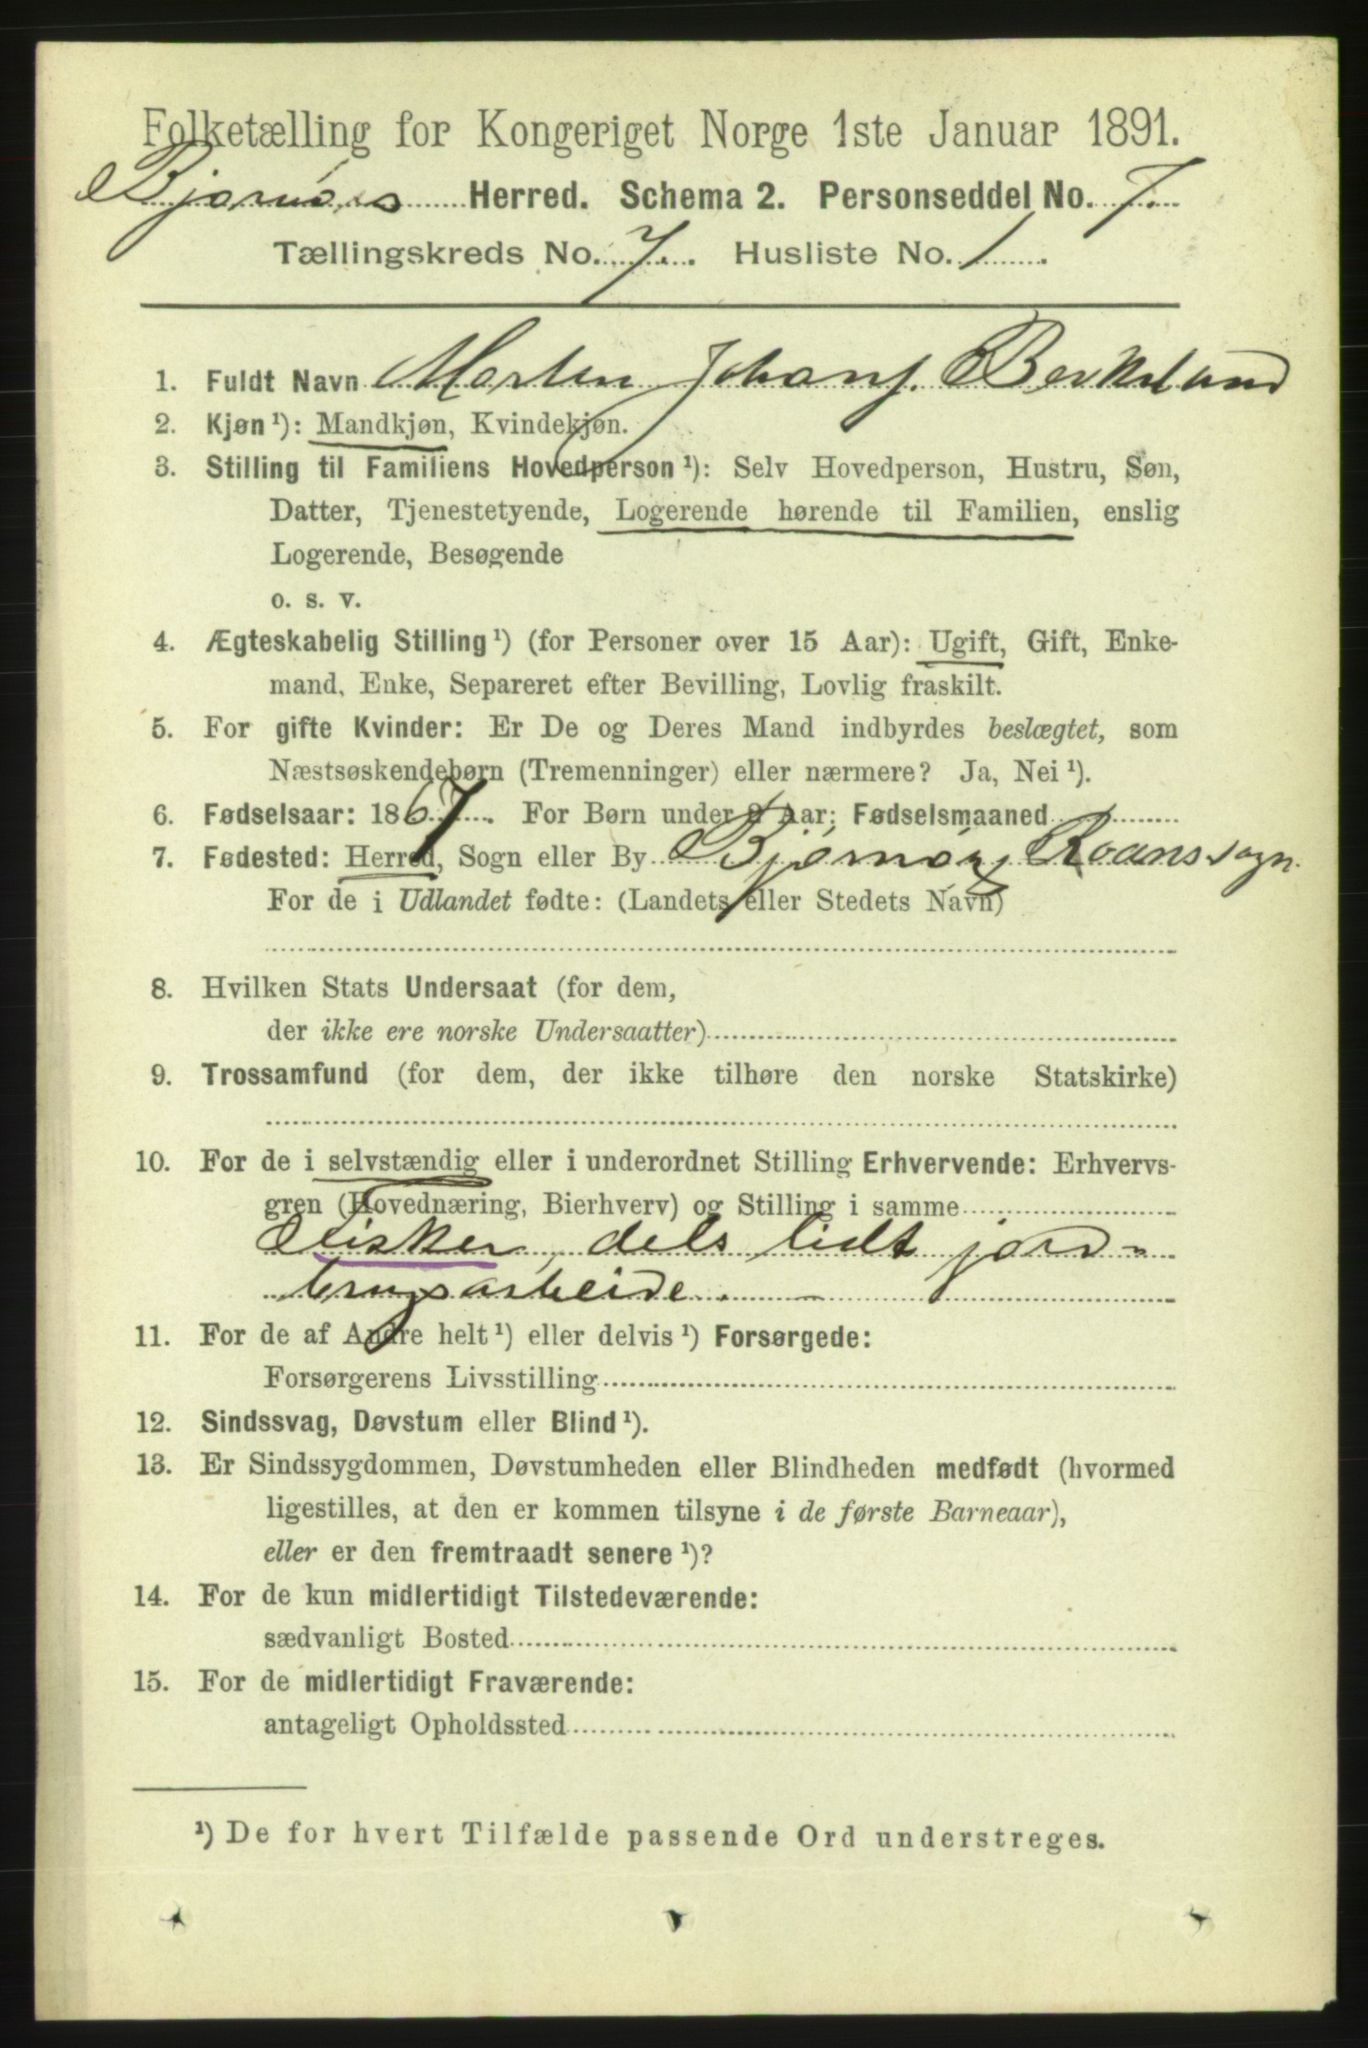 Folketælling for Kongeriget Norge 1ste Januar 1891.
Bjørnørs Herred. Schema 2. Personseddel No. 7.
Tællingskreds No. 7. Husliste No. 1
1. Fuldt Navn Morten Johans. Berkeland
2. Kjøn ¹): Mandkjøn, Kvindekjøn.
3. Stilling til Familiens Hovedperson ¹): Selv Hovedperson, Hustru, Søn,
Datter, Tjenestetyende, Logerende hørende til Familien, enslig
Logerende, Besøgende
o. s. v.
4. Ægteskabelig Stilling ¹) (for Personer over 15 Aar): Ugift, Gift, Enke-
mand, Enke, Separeret efter Bevilling, Lovlig fraskilt.
5. For gifte Kvinder: Er De og Deres Mand indbyrdes beslægtet, som
Næstsøskendebørn (Tremenninger) eller nærmere? Ja, Nei ¹).
6. Fødselsaar: 1867. For Børn under 2 Aar: Fødselsmaaned
7. Fødested: Herred, Sogn eller By Bjørnør, Roans sogn.
For de i Udlandet fødte: (Landets eller Stedets Navn)
8. Hvilken Stats Undersaat (for dem,
der ikke ere norske Undersaatter)
9. Trossamfund (for dem, der ikke tilhøre den norske Statskirke)
10. For de i selvstændig eller i underordnet Stilling Erhvervende: Erhvervs-
gren (Hovednæring, Bierhverv) og Stilling i samme
Fisker, dels lidt jord-
brugsarbeide.
11. For de af Andre helt ¹) eller delvis ¹) Forsørgede:
Forsørgerens Livsstilling
12. Sindssvag, Døvstum eller Blind ¹).
13. Er Sindssygdommen, Døvstumheden eller Blindheden medfødt (hvormed
ligestilles, at den er kommen tilsyne i de første Barneaar),
eller er den fremtraadt senere ¹)?
14. For de kun midlertidigt Tilstedeværende:
sædvanligt Bosted
15. For de midlertidigt Fraværende:
antageligt Opholdssted
¹) De for hvert Tilfælde passende Ord understreges.